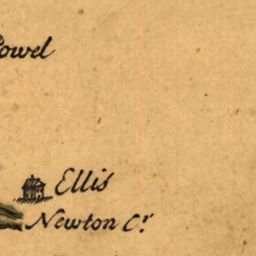 Powel
Ellis
Newton Cr.